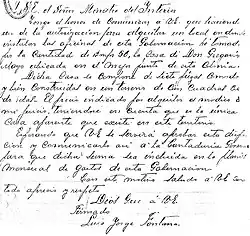 A S.E. el Señor Ministro del Interior
Tengo el honor de Comunicar á V.E. que haciendo
uso de la autorización para alquilar un local en donde
instalar las oficinas de esta Gobernación he tomado
por la Cantidad de $ la Casa de Don Gregorio
Mayo ubicada en el Mejor punto de esta Colonia.
Dicha Casa se compone de siete piezas Cómodas
y bien Construidas en un terreno de Cien Cuadras
de El precio indicado por alquiler es módico á
mi juicio, teniéndose en cuenta que es la única
Casa aparente que existe en este territorio.
Esperando que V.E. se servirá aprobar esta
y Comunicarlo así á la Contaduría General
para que dicha suma sea incluida en la planilla
Mensual de gastos de esta Gobernación
Con este motivo saludo á V.E. con
todo aprecio y respeto.
Dios Gue á V.E.
Firmado
Luis Jorge Fontana.